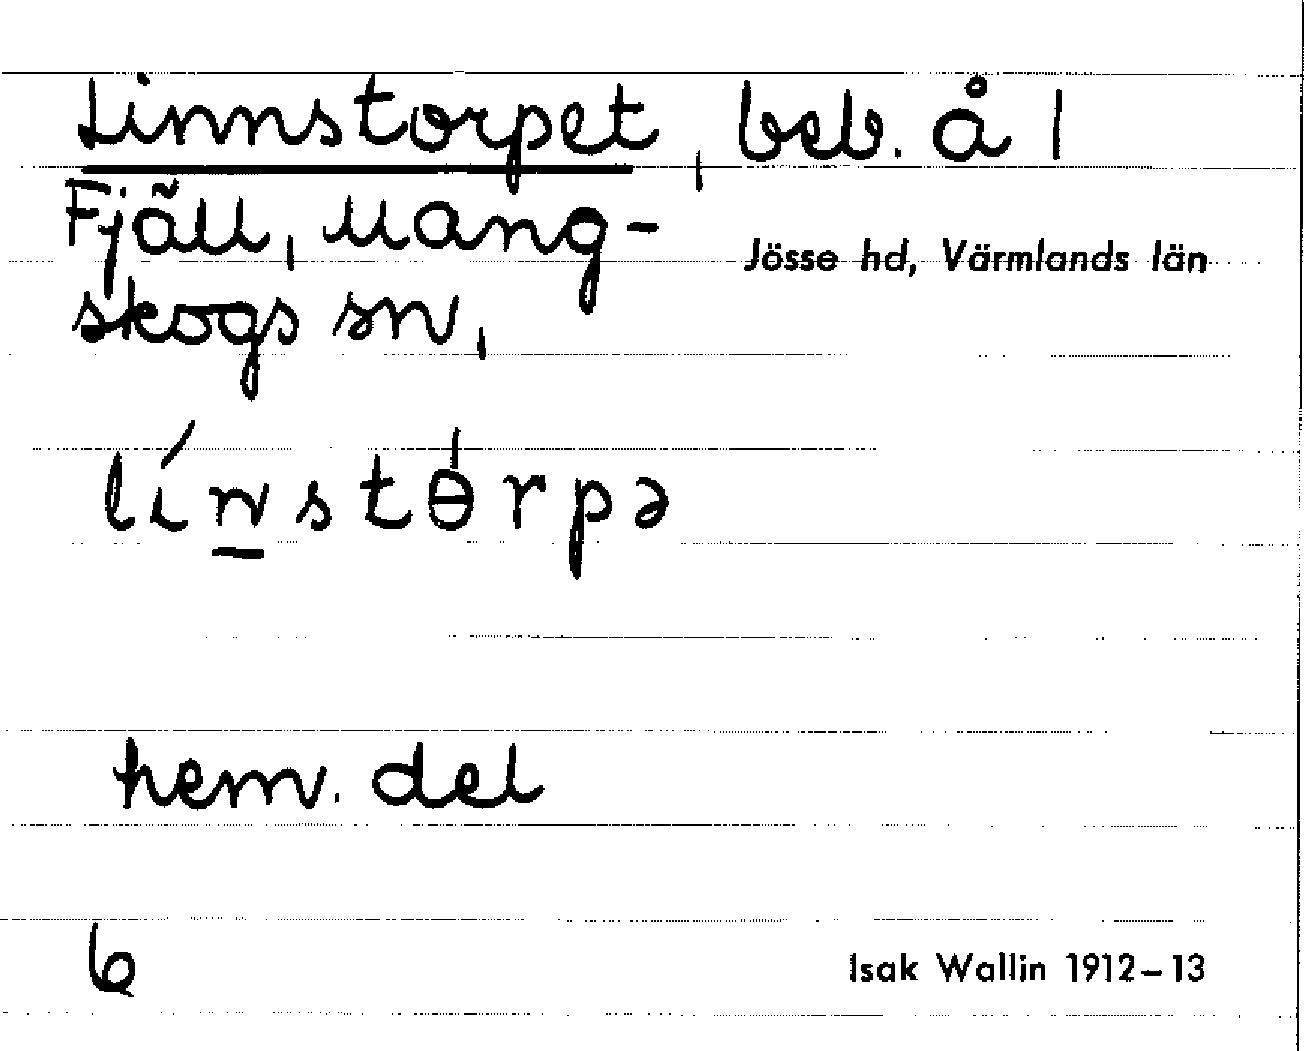 Linnstorpet, beb. å 1
Fjäll, Mang-
skogs sn,
Jösse hd, Värmlands län
lín̲stɵ́rpə
hem. del
6
Isak Wallin 1912–13